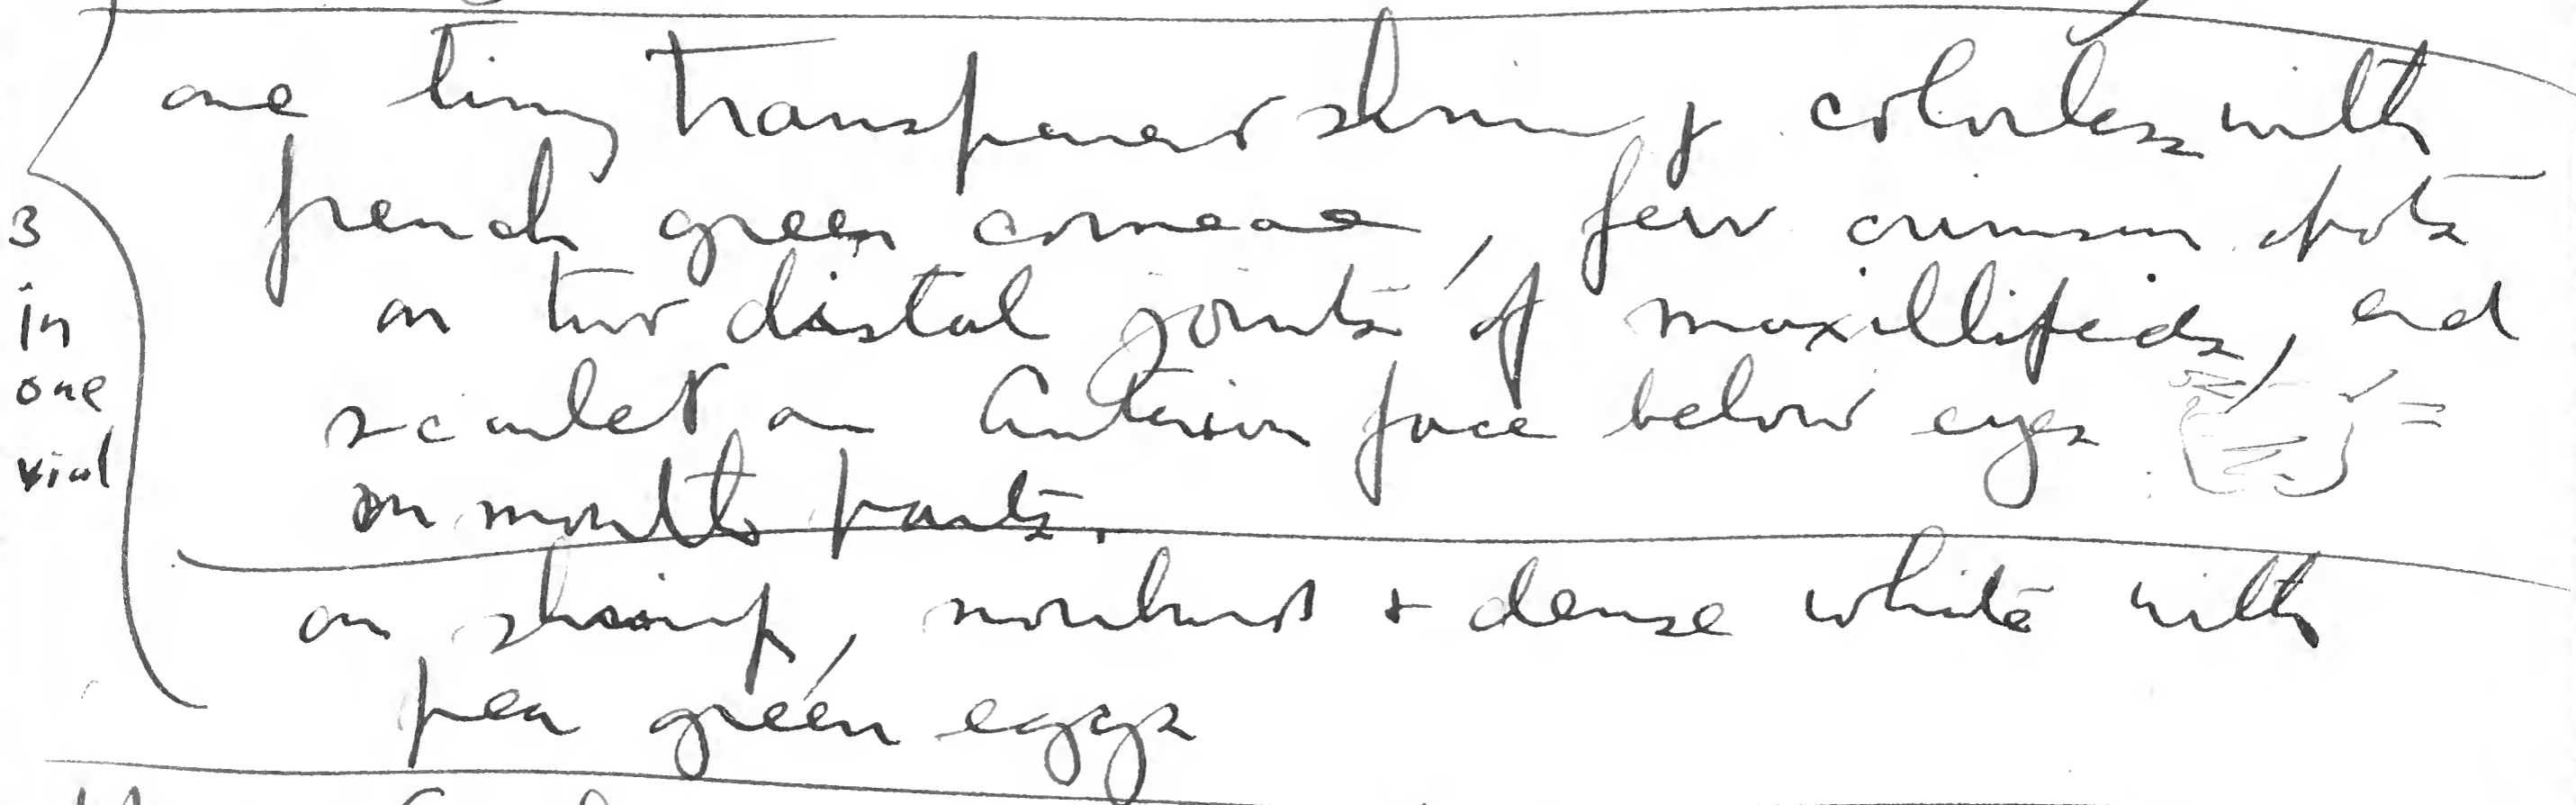 one tiny transparent shrimp colorless with
french green corneae, few crimson spots
3 on two distal joints of maxillipeds, and
in
one scarlet on anterior face below eyes =
vial on mouth parts.
on shrimp, + dense white with
pea green eggs